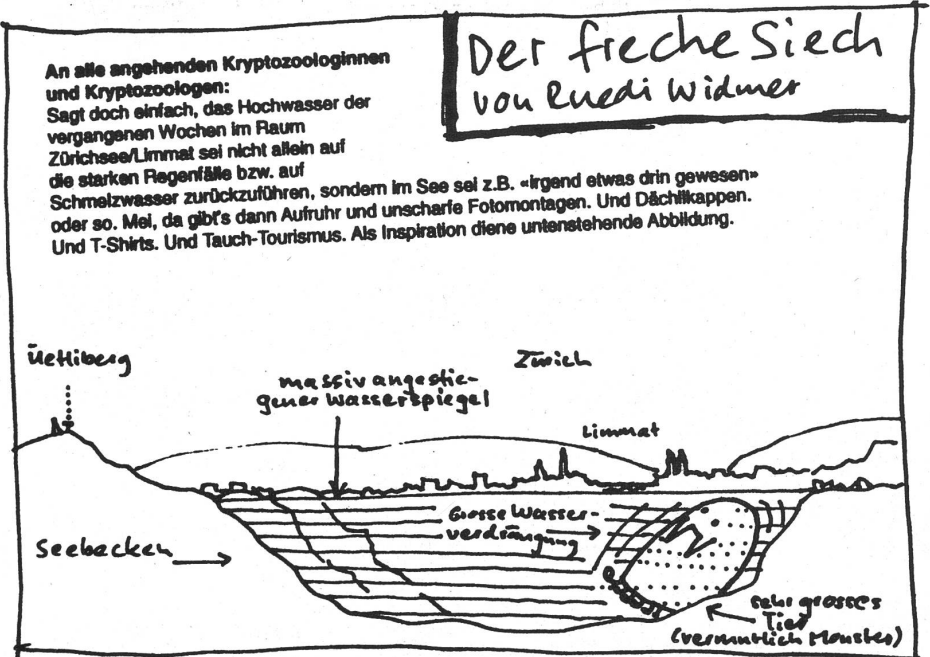 Der freche Siech
von Ruedi Widmer
An alle angehenden Kryptozoologinnen
und Kryptozoologen:
Sagt doch einfach, das Hochwasser der
vergangenen Wochen im Raum
Zürichsee/Limmat sei nicht allein auf
die starken Regenfälle bzw. auf
Schmelzwasser zurückzuführen, sondern im See sei z.B. «irgend etwas drin gewesen»
oder so. Mei, da gibt's dann Aufruhr und unscharfe Fotomontagen. Und Dächlikappen.
Und T-Shirts. Und Tauch-Tourismus. Als Inspiration diene untenstehende Abbildung.
Üetliberg
Zürich
massiv angestie-
gener Wasserspiegel
Limmat
Grosse Wasser-
verdrängung
Seebecken
sehr grosses
Tier
(vermutlich Monster)